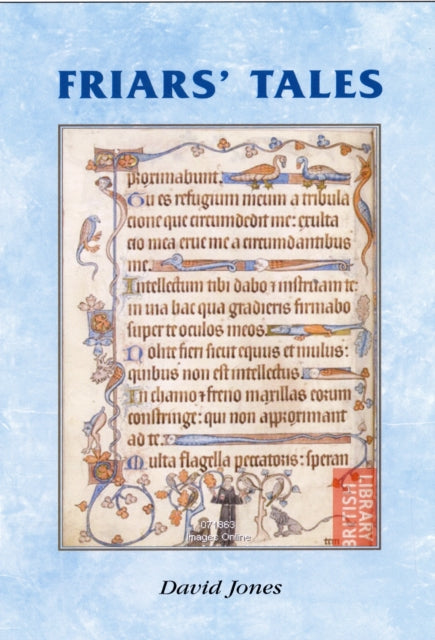 FRIARS' TALES
proximabunt.
Tu es refugium meum a tribula
cione que circumdedit me: exulta
cio mea erue me a circumdantibus
me.
Intellectum tibi dabo ⁊ instruam te:
in uia hac qua gradieris firmabo
super te oculos meos.
Nolite fieri sicut equus et mulus:
quibus non est intellectus.
In chamo ⁊ freno maxillas eorum
constringe: qui non approximant
ad te.
Multa flagella peccatoris: speran
071863
Images Online
BRITISH
LIBRARY
David Jones